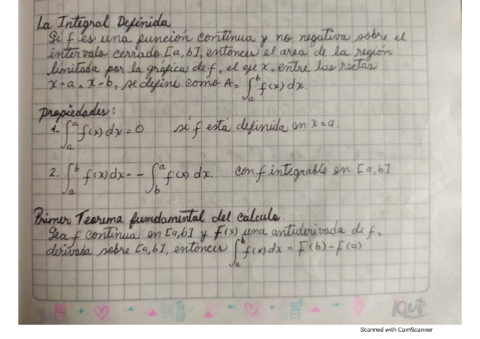 La Integral Definida
Si f es una función continua y no negativa sobre el
intervalo cerrado [a,b], entonces el area de la región
limitada por la gráfica de f, el eje x, entre las rectas
x=a ∧ x=b, se define como A = ∫_a^b f(x) dx.
Propiedades:
1. ∫_a^a f(x) dx = 0 si f está definida en x=a.
2. ∫_a^b f(x) dx = - ∫_b^a f(x) dx. con f integrable en [a,b]
Primer Teorema fundamental del calculo.
Sea f continua en [a,b] y F(x) una antiderivada de f,
derivada sobre [a,b], entonces ∫_a^b f(x) dx = F(b) - F(a)
Scanned with CamScanner